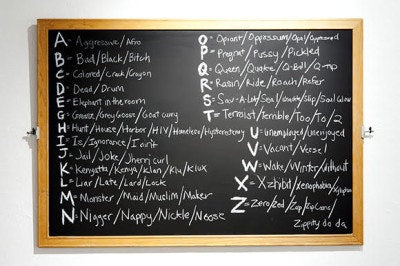 A = Aggressive/Afro
B = Bad/Black/Bitch
C = Colored/Crack/Crayon
D = Dead/Drum
E = Elephant in the room
G = Grease/Grey Goose/Goat curry
H = Hunt/House/Harbor/HIV/Homeless/Hysterectomy
I = Is/Ignorance/I ain't
J = Jail/Joke/Jherri curl
K = Kenyatta/Kenya/Klan/Klu/Klux
L = Liar/Late/Lard/Lock
M = Monster/Maid/Muslim/Maker
N = Nigger/Nappy/Nickle/Noose
O = Opiant/Oppossum/Opal/Oppressed
P = Pregnat/Pussy/Pickled
Q = Queen/Quake/Q-Ball/Q-Tip
R = Raisin/Ride/Roach/Reefer
S = Sou-A-Lot/Seal/Slip/Soul Glow
T = Terroist/Terrible/Too/To/2
U = Unemployed/unenjoyed
V = Vacant/Verse!
W = Wake/Winter/Without
X = Xzhibit/xenophobia/
Z = Zero/zed/Zap/
Zippity da da